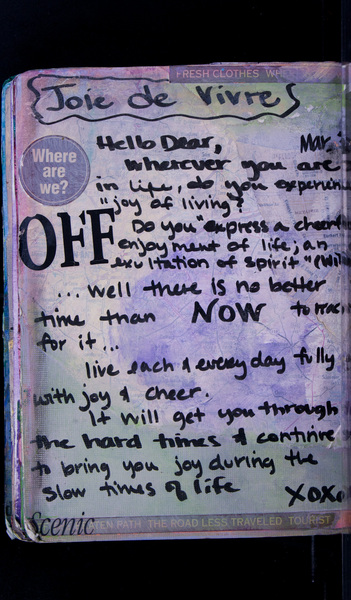 FRESH CLOTHES WH
Joie de Vivre
Hello Dear, Mar.
Where
are
we?
wherever you are
in life, do you experien
"joy of living?
OFF
Do you "express a cheerf
enjoyment of life; an
exultation of spirit" (Wi
... well there is no better
time than NOW to
for it...
live each & every day fully
with joy & cheer.
It will get you through
the hard times & continue
to bring you joy during the
slow times of life
XOXO
Scenic
TEN PATH THE ROAD LESS TRAVELED TOURIST